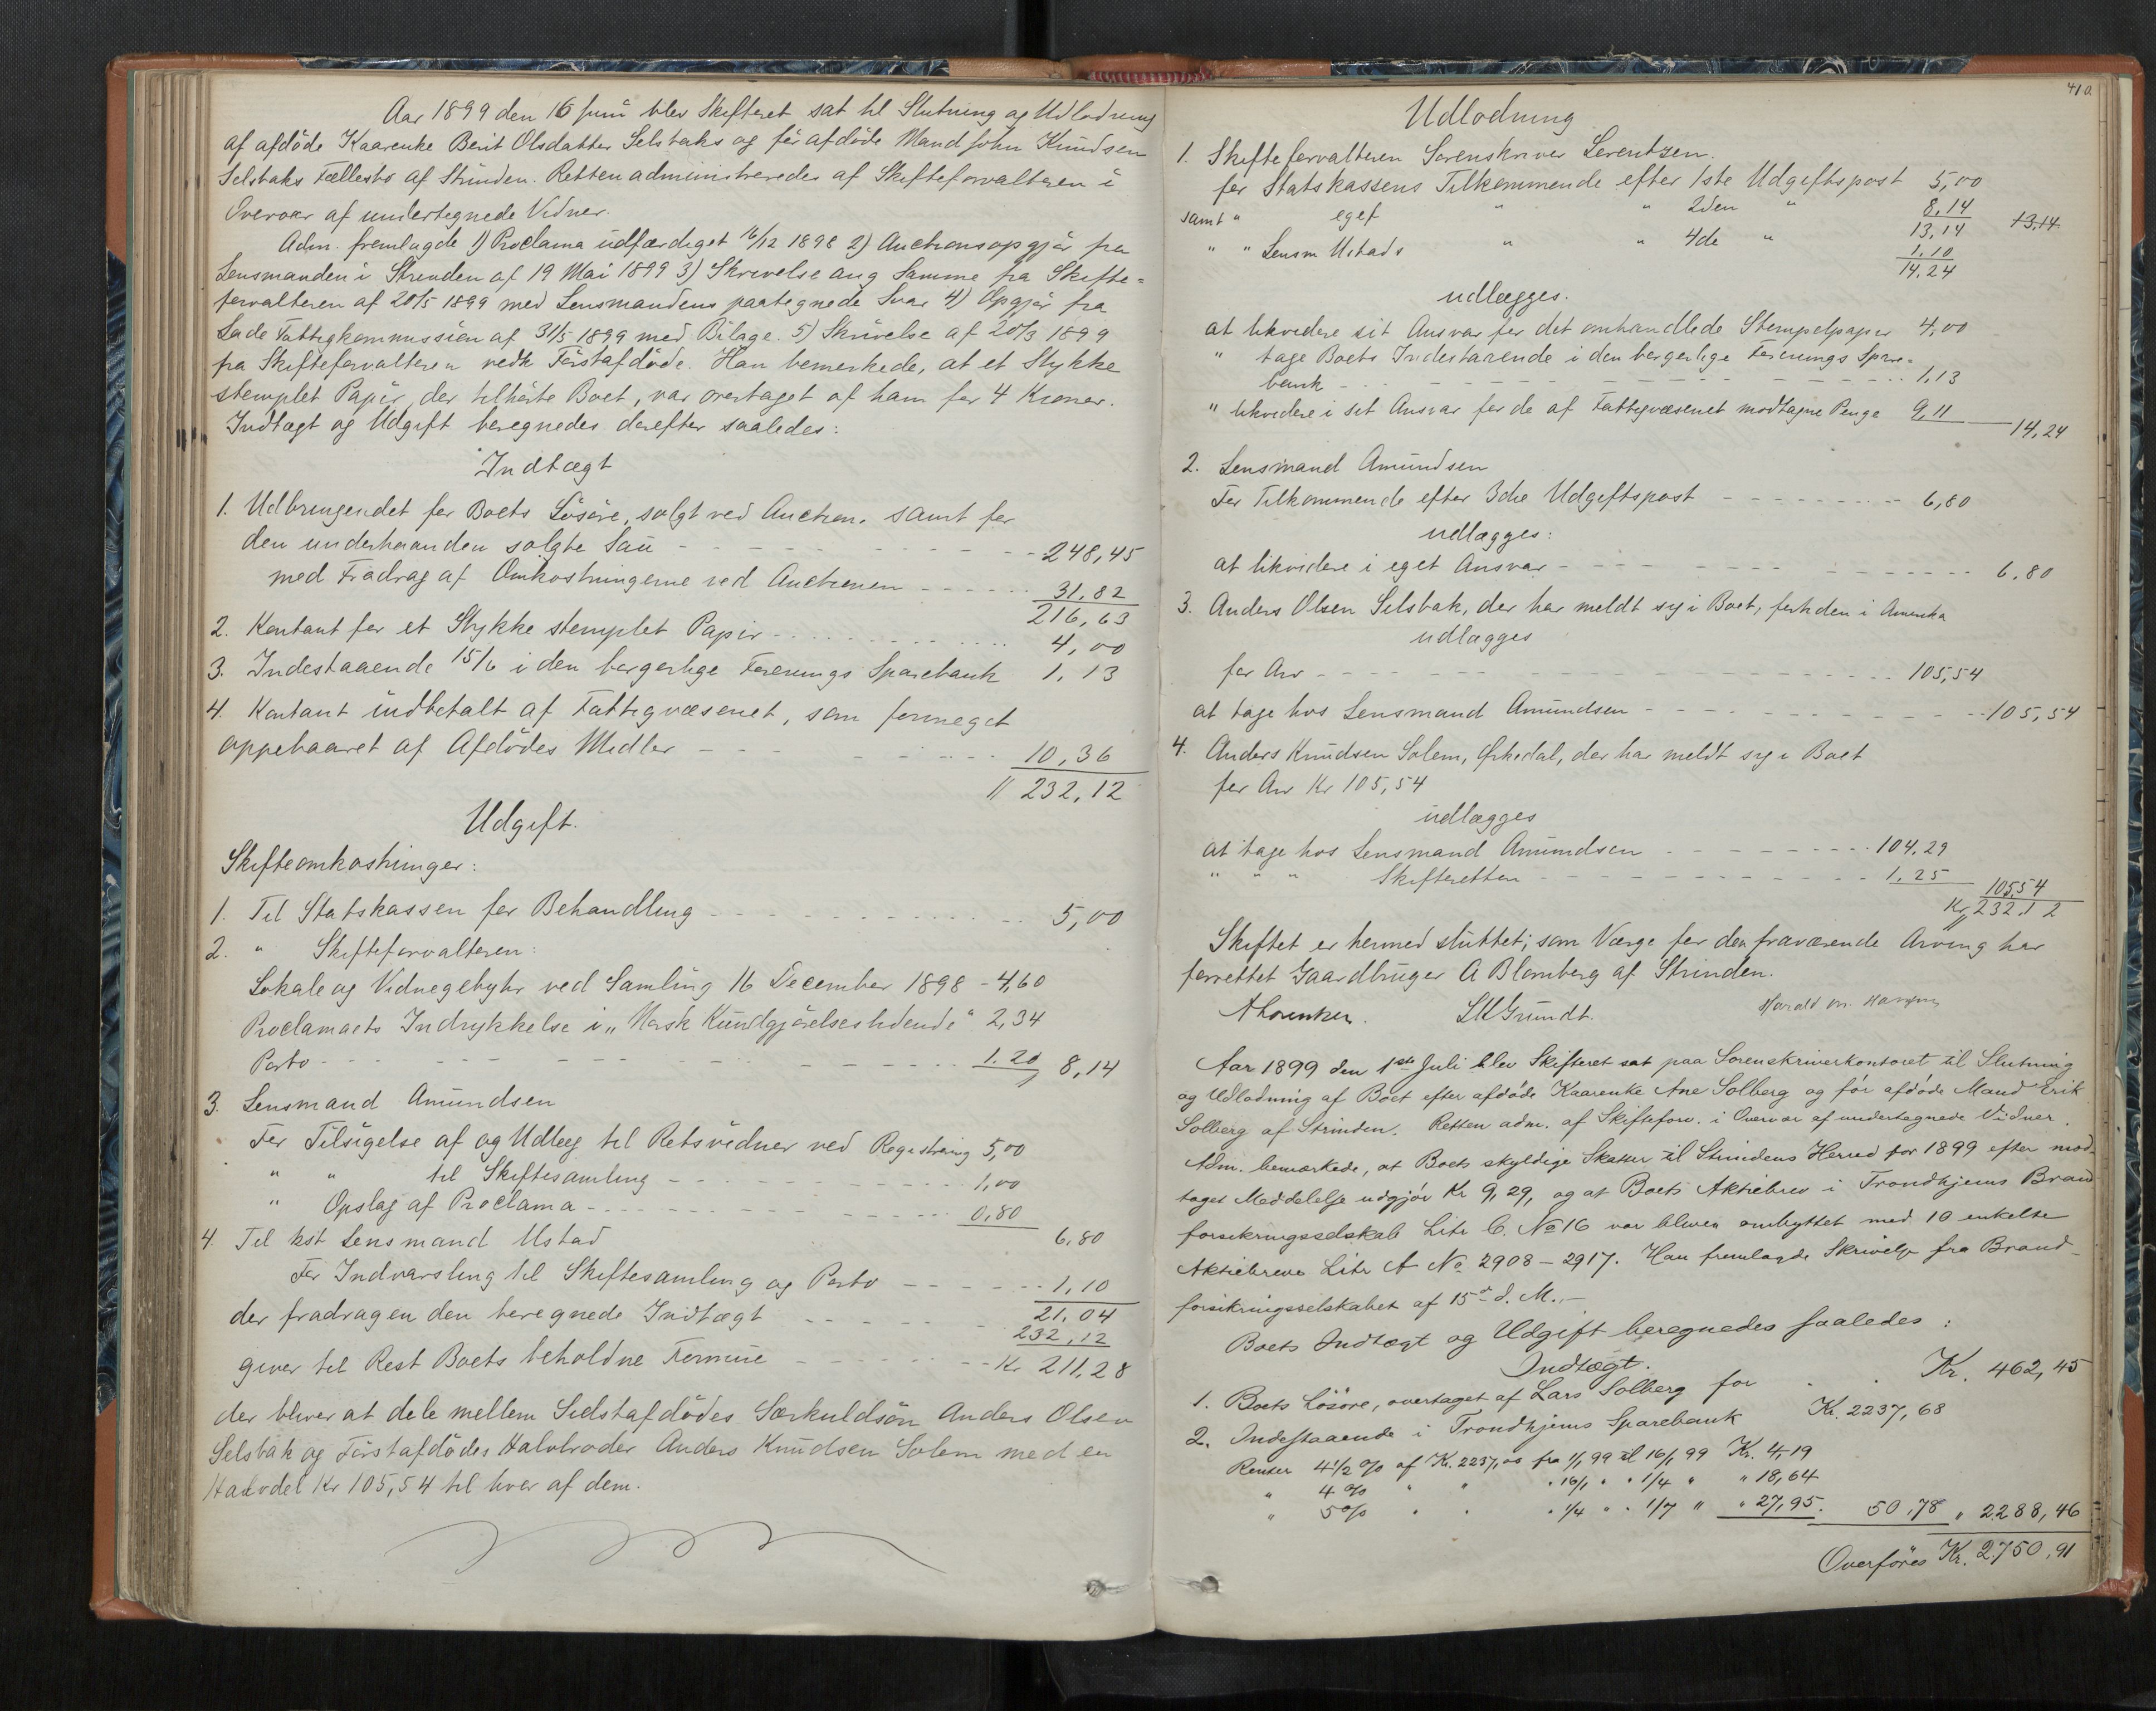 Aar 1899 den 16 Juni blev Skifteret sat til Slutning og Udlodning
af afdöde Kaarenke Berit Olsdatter Selsbaks og för afdöde Mand John Knudsen
Selsbaks Fællesbo af Strinden. Retten administreredes af Skifteforvalteren i
Overvær af undertegnede Vidner.
Adm. fremlagde 1) Proclama udfærdiget 16/12 1898 2) Auctionsopgjør fra
Lensmanden i Strinden af 19 Mai 1899 3) Skrivelse ang Samme fra Skifte=
forvalteren af 20/5 1899 med Lensmandens paategnede Svar 4) Opgjør fra
Lade Fattigkommission af 31/5 1899 med Bilage. 5) Skrivelse af 20/3 1899
fra Skifteforvalteren vedk Förstafdöde. Han bemerkede, at et Stykke
stemplet Papir, der tilhörte Boet, var overtaget af ham for 4 Kroner.
Indtægt og Udgift beregnedes derefter saaledes:
Indtægt
1. Udbringendet for Boets Lösöre, solgt ved Auction. samt for
den underhaanden solgte Sau - - - 248,45
med Fradrag af Omkostningerne ved Auctionen - - - 31,82
216,63
2. Kontant for et Stykke stemplet Papir - - - 4,00
3. Indestaaende 15/6 i den borgerlige Forenings Sparebank 1,13
4. Kontant indbetalt af Fattigvæsenet, som formeget
oppebaaret af Afdödes Midler - - - 10,36
" 232,12
Udgift.
Skifteomkostninger:
1. Til Statskassen for Behandling - - - 5,00
2. " Skifteforvalteren:
Lokale og Vidnegebyhr ved Samling 16 December 1898 - 4,60
Proclamaets Indrykkelse i „Norsk Kundgjörelsestidende" 2,34
Porto - - - 1.20 8,14
3. Lensmand Amundsen
For Tilsigelse af og Udlæg til Retsvidner ved Registrering 5,00
" " til Skiftesamling - - - 1,00
" Opslag af Proclama - - - 0,80
6,80
4. Til kst Lensmand Ustad
For Indvarsling til Skiftesamling og Porto - - - 1,10
21,04
der fradragen den beregnede Indtægt - - - 232,12
giver til Rest Boets beholdne Formue - - - Kr 211,28
der bliver at dele mellem Sidstafdödes Særkuldsön Anders Olsen
Selsbak og Förstafdödes Halvbroder Anders Knudsen Solem med en
Halvdel Kr 105,54 til hver af dem.
410
Udlodning
1. Skifteforvalteren Sorenskriver Lorentzen.
for Statskassens Tilkommende efter 1ste Udgiftspost 5,00
samt " eget " " 2den " 8,14
13,14 13,14
" " Lensm Ustads " " 4de " 1,10
14,24
udlægges.
at likvidere sit Ansvar for det omhandlede Stempelpapir 4,00
" tage Boets Indestaaende i den borgerlige Forenings Spare=
bank - - - 1,13
" likvidere i sit Ansvar for de af Fattigvæsenet modtagne Penge 9,11 14,24
2. Lensmand Amundsen
For Tilkommende efter 3die Udgiftspost - - - 6,80
udlægges:
at likvidere i eget Ansvar - - - 6,80
3. Anders Olsen Selsbak, der har meldt sig i Boet, fortiden i Amerika
udlægges
for Arv - - - 105,54
at tage hos Lensmand Amundsen - - - 105,54
4. Anders Knudsen Solem, Orkedal, der har meldt sig i Boet
for Arv Kr 105,54
udlægges
at tage hos Lensmand Amundsen - - - 104,29
" " " Skifteretten - - - 1,25 105,54
Kr 232,12
Skiftet er hermed sluttet; som Værge for den fraværende Arving har
forrettet Gaardbruger A Blomberg af Strinden.
A Lorentzen. Grundt. Harald
Aar 1899 den 1ste Juli blev Skifteret sat paa Sorenskriverkontoret til Slutning
og Udlodning af Boet efter afdöde Kaarenke Ane Solberg og för afdöde Mand Erik
Solberg af Strinden. Retten adm. af Skifteforv. i Overvær af undertegnede Vidner.
Adm. bemærkede, at Boets skyldige Skatter til Strindens Herred for 1899 efter mod-
taget Meddelelse udgjör Kr 9,29, og at Boets Aktiebrev i Trondhjems Brand
forsikringsselskab Litr C. No 16 var bleven ombyttet med 10 enkelte
Aktiebreve Litr A No 2908 – 2917. Han fremlagde Skrivelse fra Brand-
forsikringsselskabet af 15de d. M. –
Boets Indtægt og Udgift beregnedes saaledes:
Indtægt.
1. Boets Lösöre, overtaget af Lars Solberg for Kr. 462,45
2. Indestaaende i Trondhjems Sparebank Kr. 2237,68
Renter 4½ % af Kr. 2237,00 fra 1/1 99 til 16/1 99 Kr. 4,19
" 4 % " " " 16/1 " " 1/4 " " 18,64
" 5 % " " " 1/4 " " 1/7 " " 27,95. 50,78 " 2288,46
Overföres Kr. 2750,91